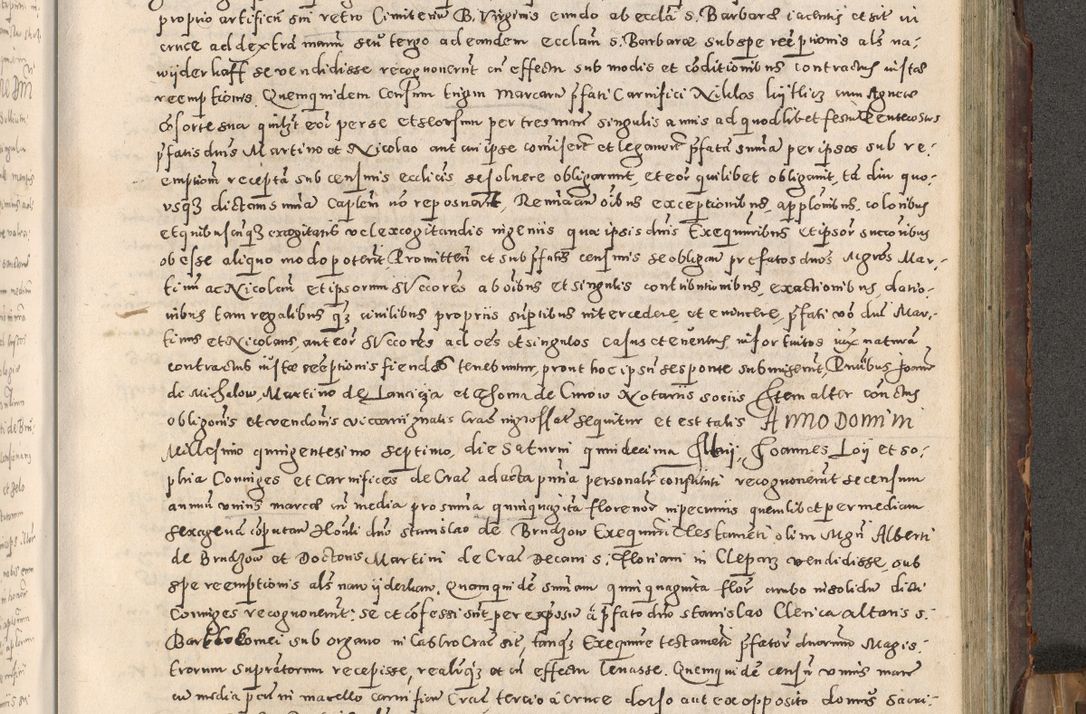 proprio artificii sui retro Cimiteriu B. Virginis eundo ab eccla s. Barbarae iacentis et sit in
cruce ad dextrā manū seu tergo ad eandem ecclam s. Barbarae sub spe reēptionis als na-
wyderkaff se vendidisse recognoverunt cū effectu sub modis et cōditionibus contractus iustae
reemptionis. Quemquidem censum trium Marcarū pfati Carnifici Niklos cum Agnete
cōsorte sua quilzt eorū per se et seorsum per tres marc singulis annis ad quodlibet festū Pentecostes
pfatis dnis Martino et Nicolao aut cui ipse comiserit et legaverit pfata suma per ipsos sub re-
emptiōm recepta sub censuris ecclicis se solvere obligarunt, et eor quilibet obligavit, tā diu quo-
usqz dictam suma Capitalem nō reposuerit, Renuncian oibus exceptionibus, appllonibus, coloribus
et quibuscūqz excogitatis vel excogitandis ingeniis quae ipsis dnis Exequutoribus et ipsor succoribus
obesse aliquo modo poterit, Promitten et sub pfatis censuris se obligan prefatos dnos Mgros Mar-
tinū ac Nicolaū et ipsorum succores ab oibus et singulis contributionibus, exactionibus, datio-
nibus tam regalibus qz civilibus propriis suptibus intercedere, et evincere, pfati vō dni Mar-
tinus et Nicolaus, aut eor succores ad oēs et singulos casus et eventus infortuitos iuxta naturā
contractus iustae reēptionis fiendos tenebuntur, prout hoc ipsū se sponte submiserūt, Pntibus Joanne
de Michalow, Martino de Lancicia et Thoma de Curow Notariis sociis. Item alter cōntctus
obligonis et vendonis viccarii gnalis Crac ingrossat sequitur et est talis Anno Domini
Millesimo quingentesimo septimo, die Saturni quindecima Maij, Joannes Loy et So-
phia Coniuges et Carnifices de Crac ad acta pnia personalr constituti recognoverūt se censum
annuū unius marcae cū media pro suma quinquaginta florenor in pecuniis quemlibet per mediam
sexagenā cōputan Honli dno Stanislao de Brudzow Exequutori Testamēti olim Mgri Alberti
de Brudzow et Doctoris Martini de Crac Decani s. Floriani in Cleparz vendidisse, sub
spe reemptionis als naw ijderkaw. Quamquidē sumam quinquaginta flor ambo in solidū dicti
Coniuges recognoverūt: se et cōfessi sūt per expssū a pfato dno Stanislao Clerica Altaris s.
Bartholomei sub organo in Castro Crac sit, tanqz Exequutore testamēti pfator duorum Magis-
trorum supratorum recepisse, realirqz et cū effectu levasse. Quemquidē censū unius marc
cū media pcui in macello carnificū Crac tercio a cruce dorso aut ex opposito domus Saui-